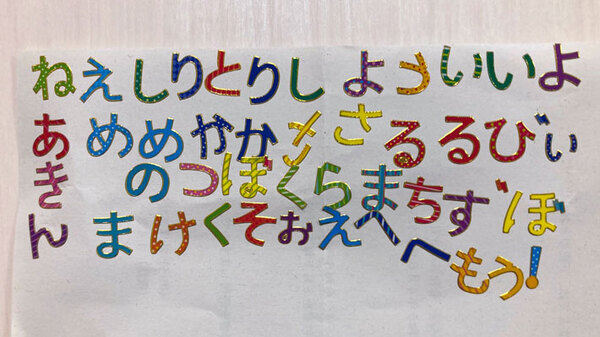 ねえしりとりし よういいよ
あ めめやかメさるるびぃ
き のつぼくらまちず ぼ
ん まけくそぉえへへもう!